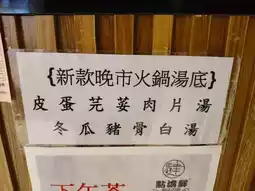 {新款晚市火鍋湯底}
皮蛋芫荽肉片湯
冬瓜豬骨白湯
下午茶